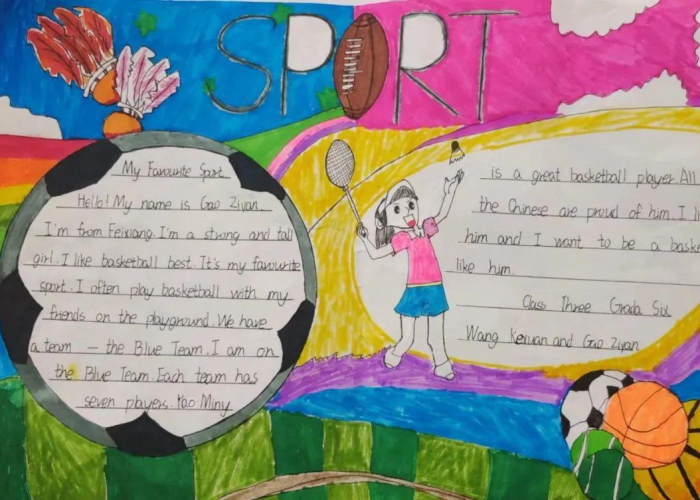 SPORT
My Favourite Sport
Hello! My name is Gao Ziyan
I'm from Feixiang. I'm a strong and tall
girl. I like basketball best. It's my favourite
sport. I often play basketball with my
friends on the playground. We have
a team — the Blue Team. I am on
the Blue Team. Each team has
seven players. Yao Ming
is a great basketball player. All
the Chinese are proud of him. I
him and I want to be a
like him
Class Three Grade Six
Wang and Gao Ziyan